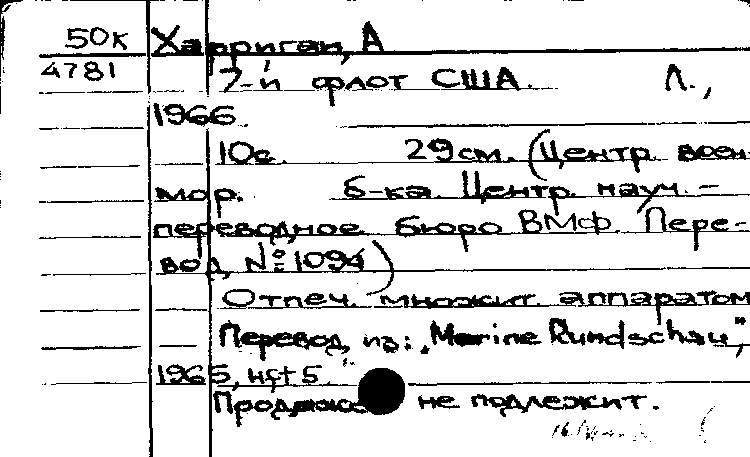 50к Харриган, А
4781 7-й флот США. Л.,
1966.
10с. 29см. (Центр. воен.
мор. б-ка. Центр. науч.-
переводное бюро ВМФ. Пере-
вод № 1094)
Отпеч. множит. аппаратом
Перевод из: „Marine Rundschau”,
1965, Hft 5.
не подлежит.